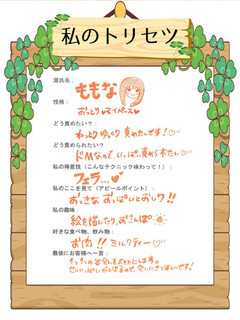 私のトリセツ
源氏名：
ももな
性格：
おっとりマイペース
どう責めたい？：
ねっとりゆっくり責めたいです！♡
どう責められたい？：
ドMなので、いっぱい責められたい♡
私の得意技（こんなテクニック味わって！）：
フェラ…♥
私のここを見て（アピールポイント）：
おっきなおっぱいとおしり!!
私の趣味：
絵を描いたり、おさんぽ
好きな食べ物、飲み物：
お肉!! ミルクティー♡
最後にお客様へ一言：